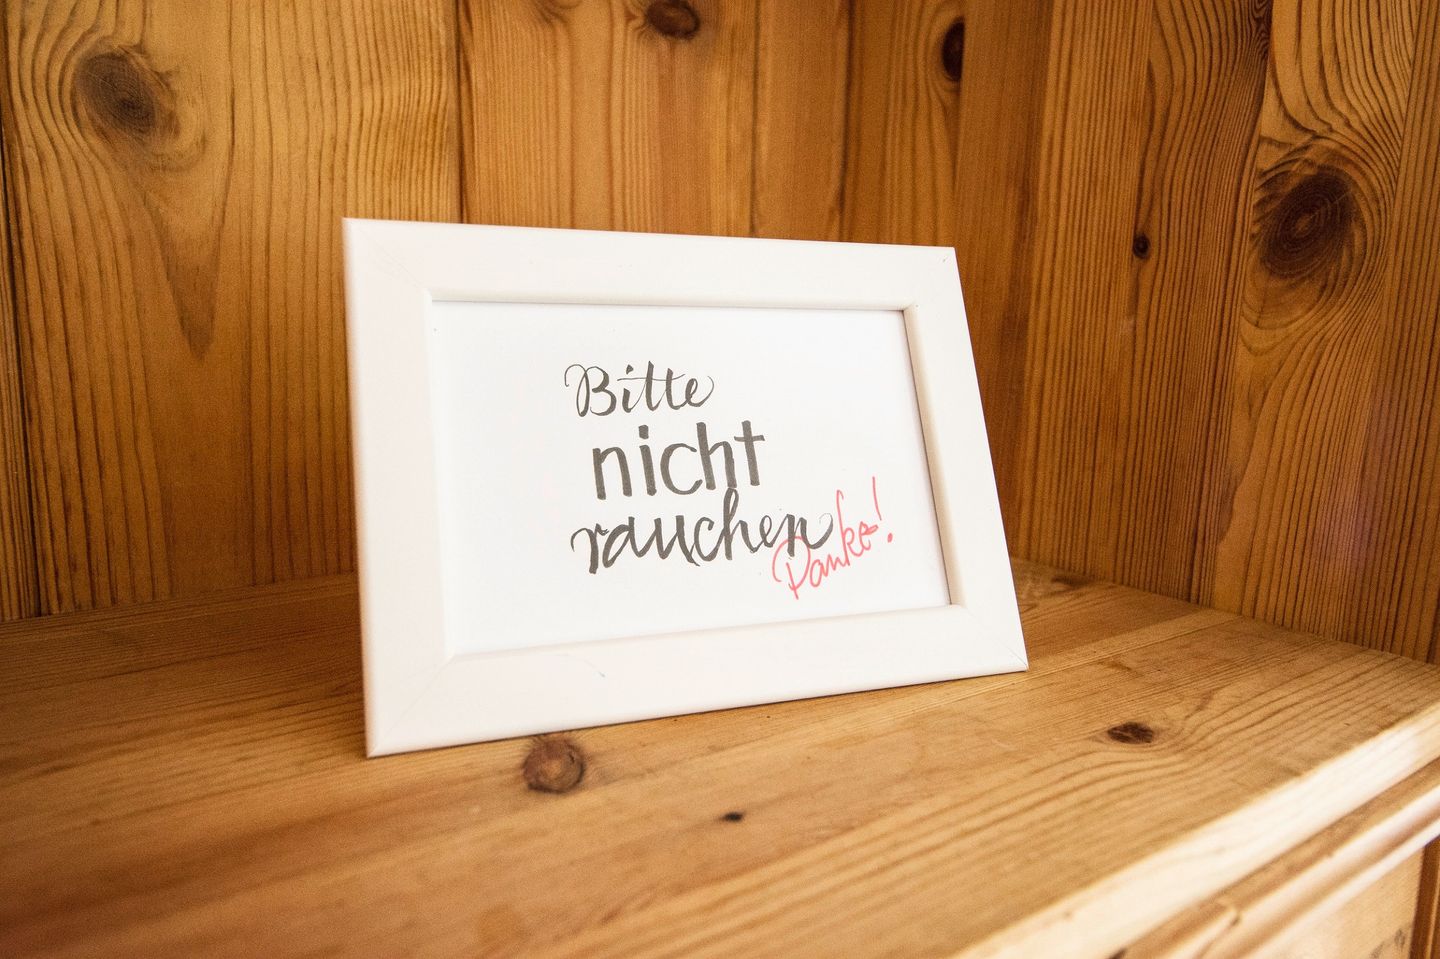 Bitte
nicht
rauchen
Danke!